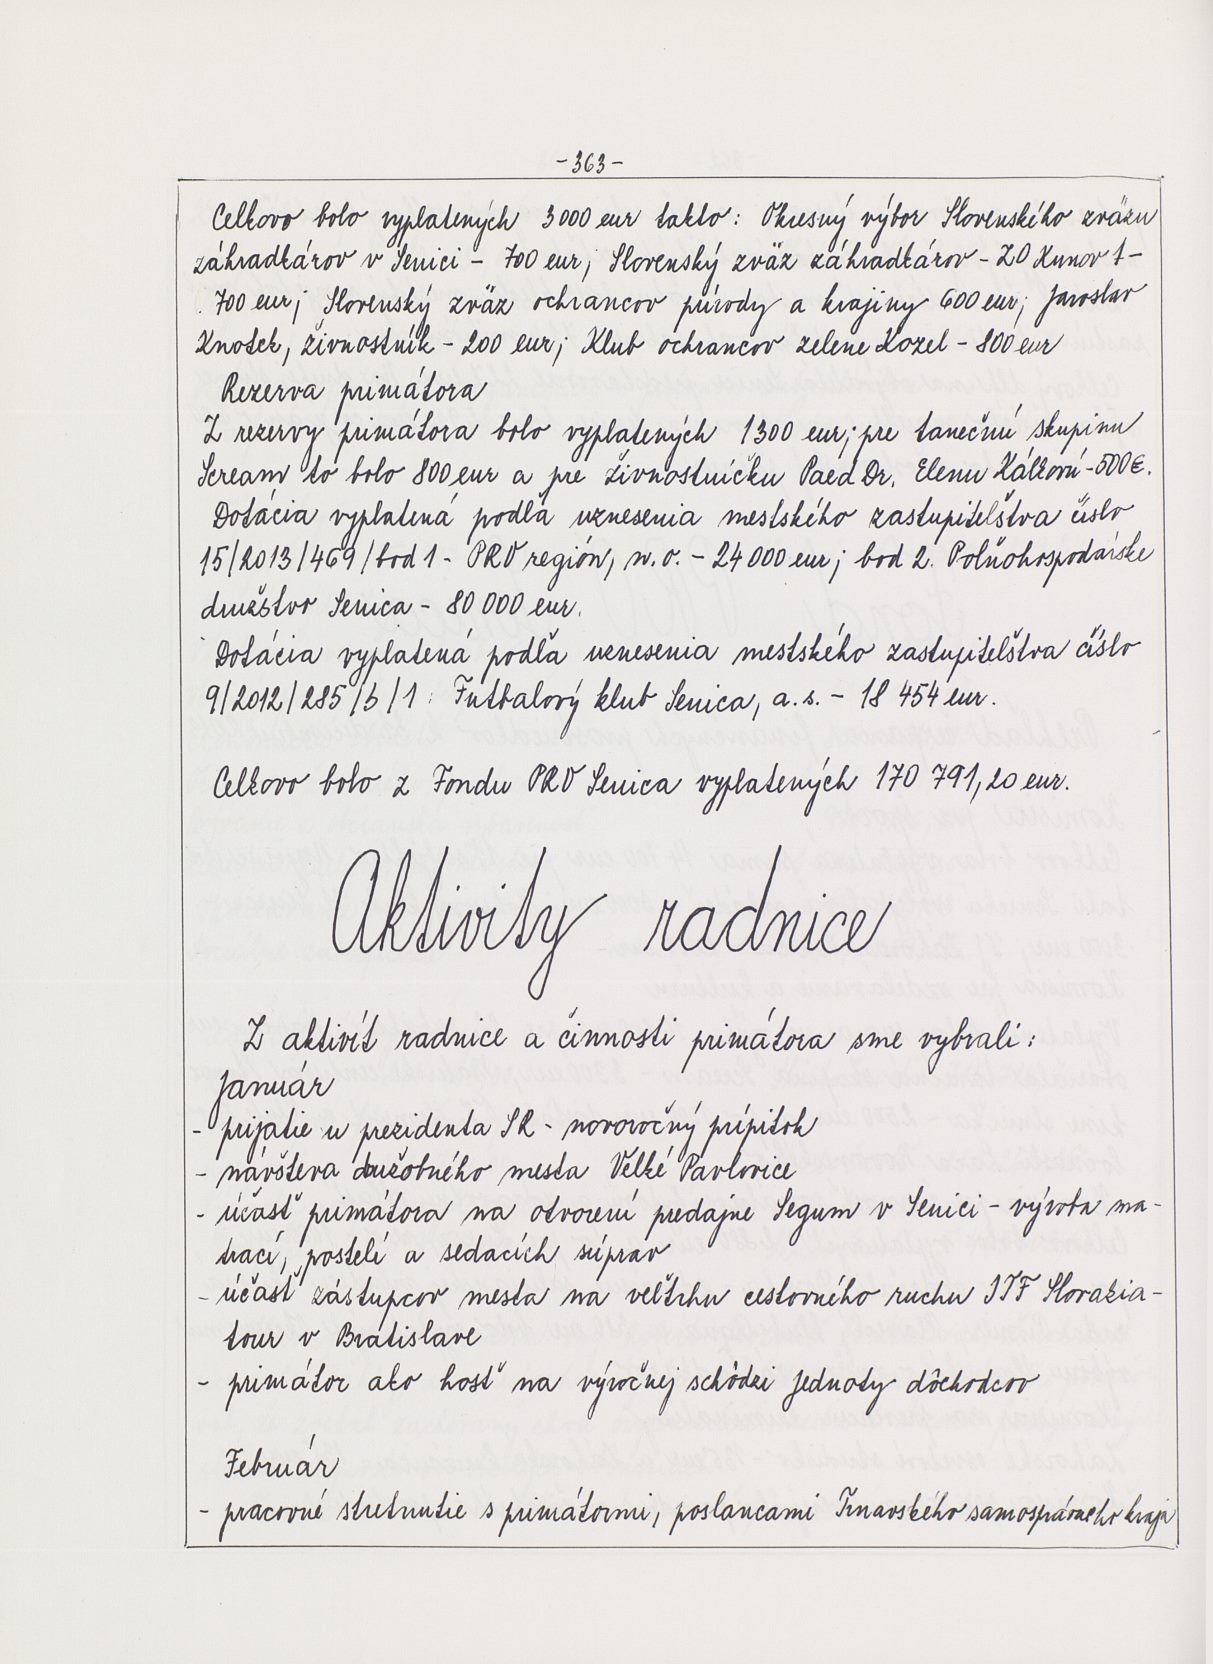 -363-
Celkovo bolo vyplatených 3000 eur takto: Okresný výbor Slovenského zväzu
záhradkárov v Senici - 700 eur; Slovenský zväz záhradkárov - ZO Kunov 1 -
700 eur; Slovenský zväz ochrancov prírody a krajiny 600 eur; Jaroslav
Knotek, živnostník - 200 eur; Klub ochrancov zelene Kozel - 800 eur
Rezerva primátora
Z rezervy primátora bolo vyplatených 1300 eur; pre tanečnú skupinu
Scream to bolo 800 eur a pre živnostníčku PaedDr. Elenu Kálkovú - 500€.
Dotácia vyplatená podľa uznesenia mestského zastupiteľstva číslo
15/2013/469/bod 1 - PRO región, n.o. - 24 000 eur; bod 2. Poľnohospodárske
družstvo Senica - 80 000 eur.
Dotácia vyplatená podľa uznesenia mestského zastupiteľstva číslo
9/2012/285/b/1: Futbalový klub Senica, a.s. - 18 454 eur.
Celkovo bolo z Fondu PRO Senica vyplatených 170 791,20 eur.
Aktivity radnice
Z aktivít radnice a činnosti primátora sme vybrali:
Január
- prijatie u prezidenta SR - novoročný prípitok
- návšteva družobného mesta Veľké Pavlovice
- účasť primátora na otvorení predajne Segum v Senici - výroba ma-
trací, postelí a sedacích súprav
- účasť zástupcov mesta na veľtrhu cestovného ruchu ITF Slovakia-
tour v Bratislave
- primátor ako hosť na výročnej schôdzi Jednoty dôchodcov
Február
- pracovné stretnutie s primátormi, poslancami Trnavského samosprávneho kraja